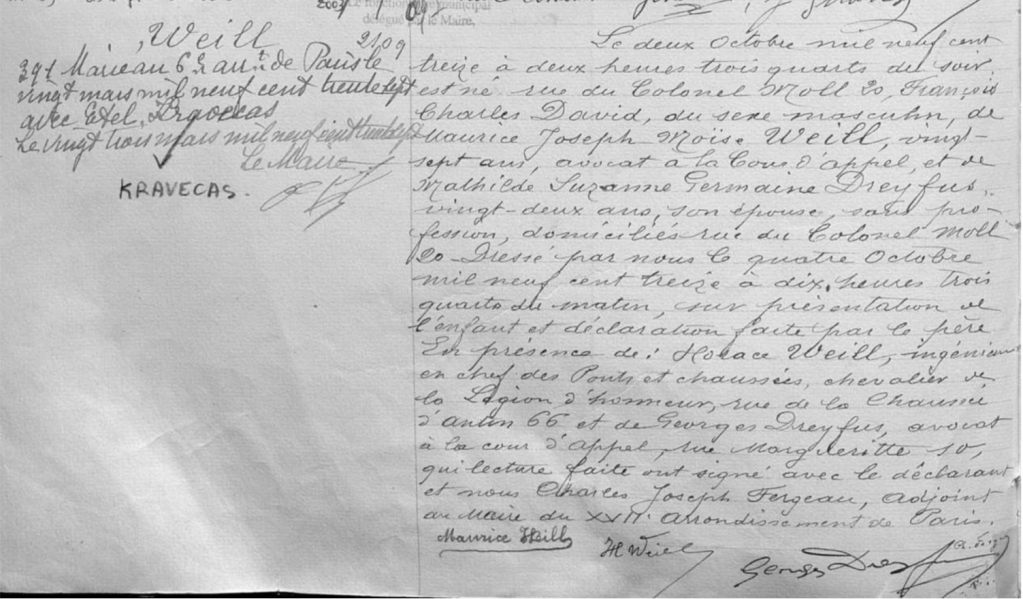 2009
Le fonctionnaire municipal
délégué par le Maire,
Weill
2109
Marié au 6e arrt de Paris le
vingt mars mil neuf cent trente sept
avec Etel, Kravecas
Le vingt trois mars mil neuf cent trente sept
Le Maire
KRAVECAS.
Le deux Octobre mil neuf cent
treize à deux heures trois quarts du soir
est né rue du Colonel Moll 20, François
Charles David, du sexe masculin, de
Maurice Joseph Moïse Weill, vingt-
sept ans, avocat à la Cour d'appel, et de
Mathilde Suzanne Germaine Dreyfus,
vingt-deux ans, son épouse, sans pro-
fession, domiciliés rue du Colonel Moll
20 - Dressé par nous le quatre Octobre
mil neuf cent treize à dix heures trois
quarts du matin, sur présentation de
l'enfant et déclaration faite par le père
En présence de : Horace Weill, ingénieur
en chef des Ponts et chaussées, chevalier de
la Légion d'honneur, rue de la Chaussée
d'antin 66 et de Georges Dreyfus, avocat
à la cour d'appel, rue Margueritte 10,
qui lecture faite ont signé avec le déclarant
et nous Charles Joseph Fergeau, adjoint
au Maire du XVIIe arrondissement de Paris.
Maurice Weill
H Weill
Georges Dreyfus